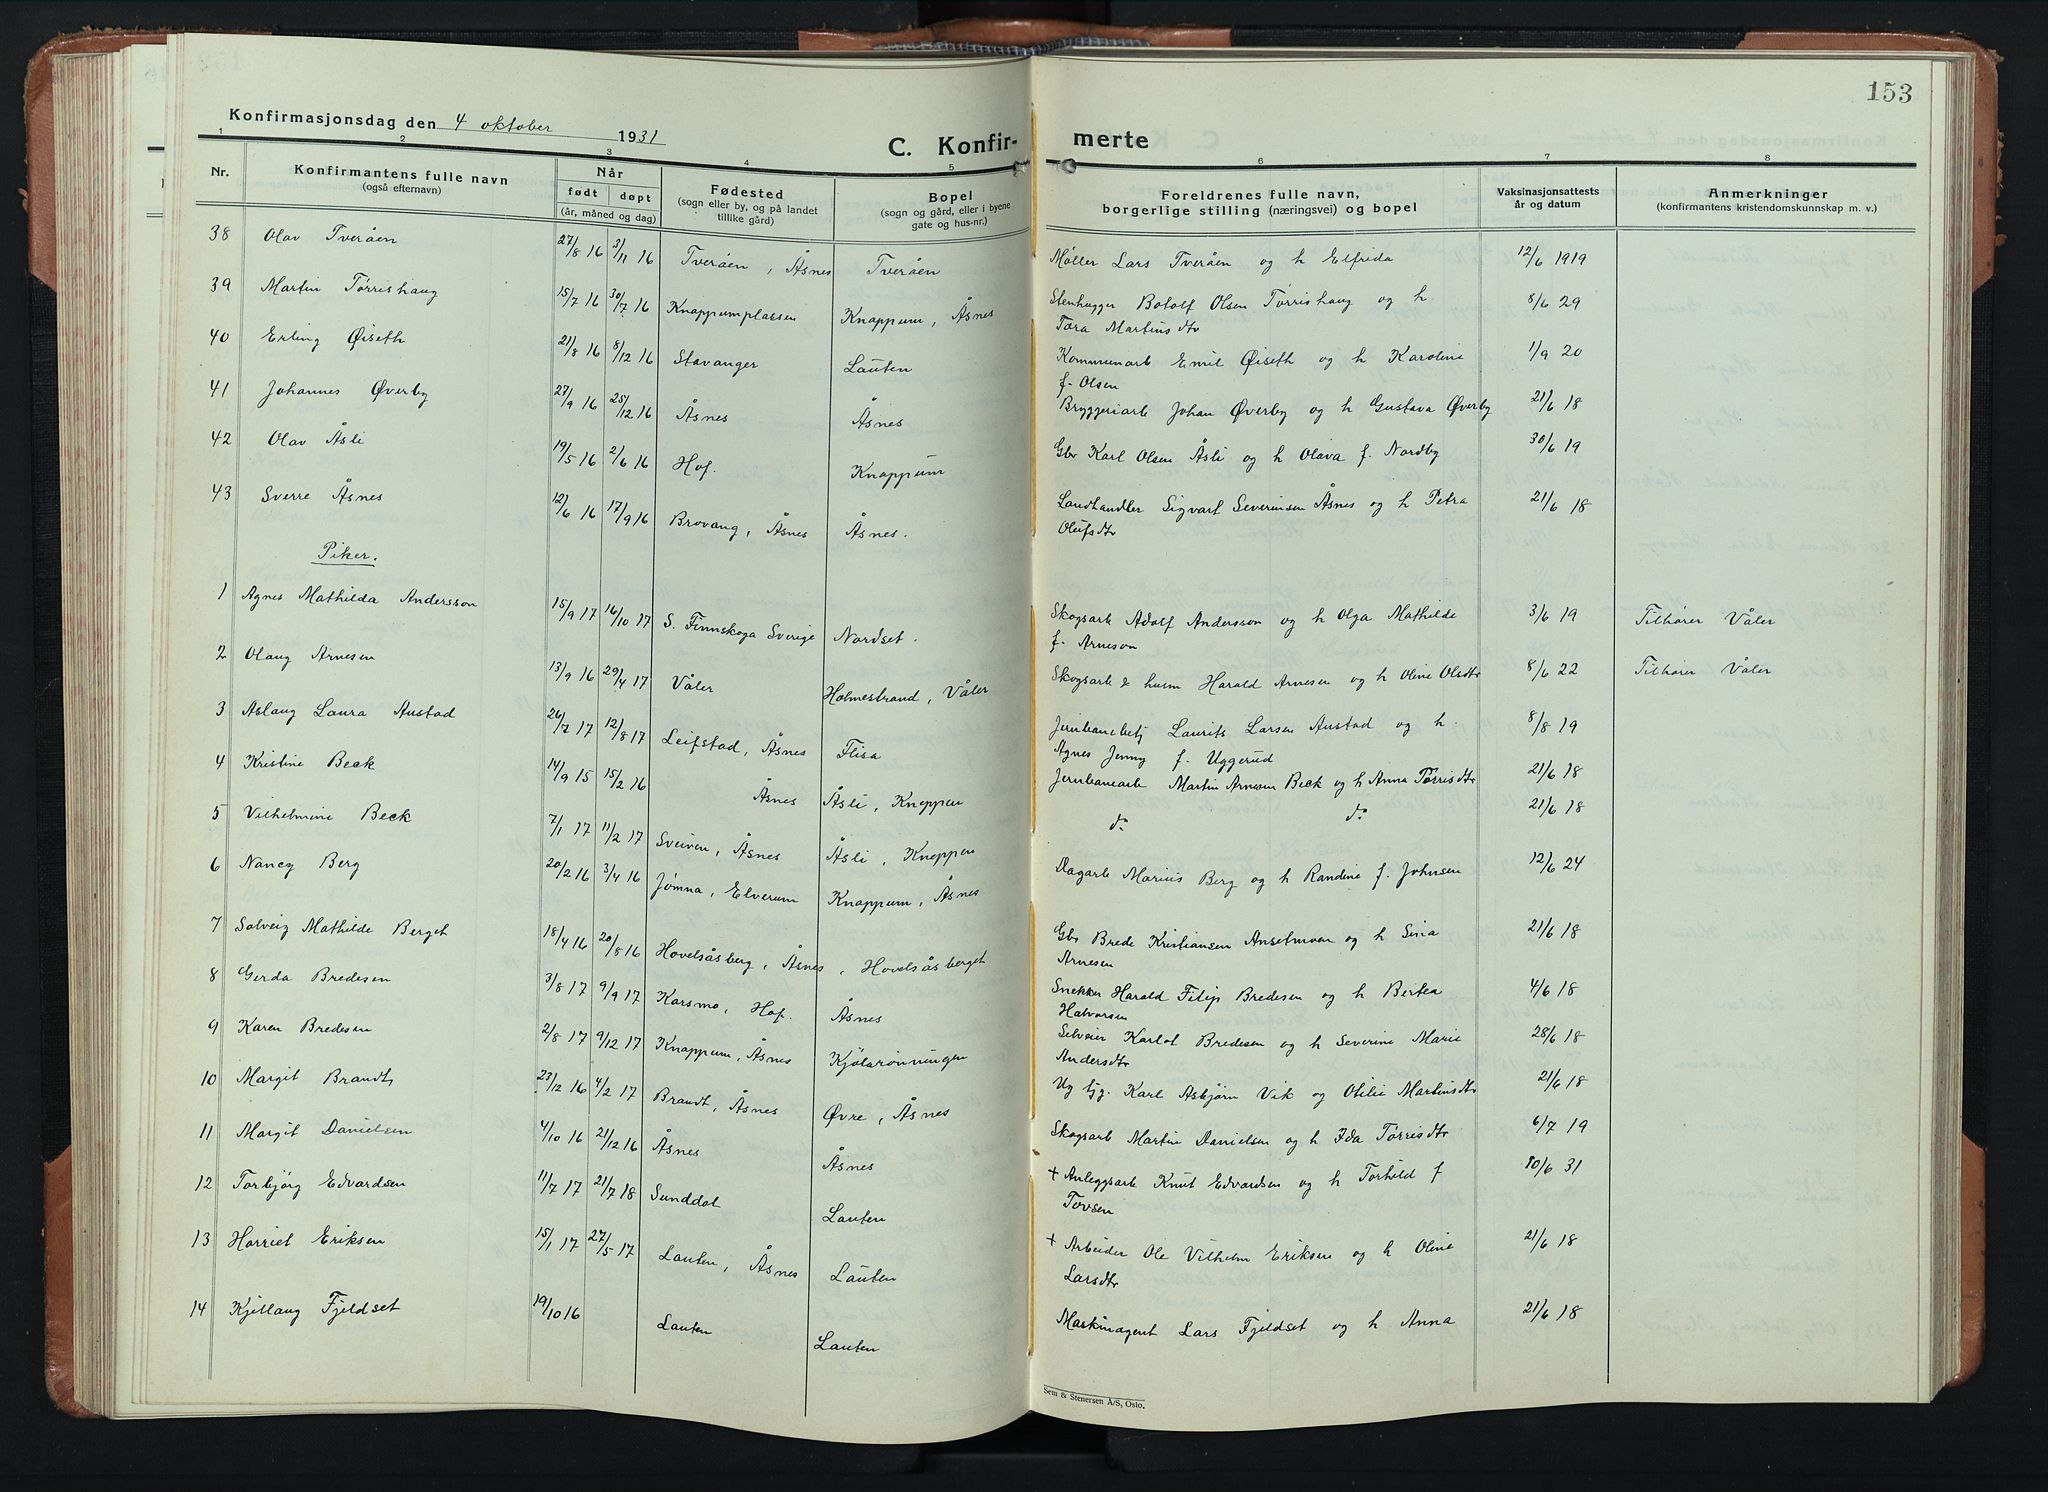 153
Konfirmasjonsdag den 4 oktober 1931
C. Konfir- merte
1 2 3 4 5 6 7 8
Nr. Konfirmantens fulle navn (også efternavn) Når født døpt (år, måned og dag) Fødested (sogn eller by, og på landet tillike gård) Bopel (sogn og gård, eller i byene gate og hus-nr.) Foreldrenes fulle navn, borgerlige stilling (næringsvei) og bopel Vaksinasjonsattests år og datum Anmerkninger (konfirmantens kristendomskunnskap m. v.)
38 Olav Tveråen 27/8 16 3/11 16 Tveråen, Åsnes Tveråen Møller Lars Tveråen og h Elfrida 12/6 1919
39 Martin Tørrishaug 15/7 16 30/7 16 Knappumplassen Knappum, Åsnes Stenhugger Botolf Olsen Tørrishaug og h 8/6 29
Tora Martinsdtr
40 Erling Øiseth 21/8 16 8/12 16 Stavanger Lauten Kommunearb Emil Øiseth og h Karoline 1/9 20
f. Olsen
41 Johannes Øverby 27/9 16 25/12 16 Åsnes Åsnes Bryggeriarb Johan Øverby og h Gustava Øverby 21/6 18
42 Olav Åsli 19/5 16 2/6 16 Hof. Knappum Gbr Karl Olsen Åsli og h Olava f. Nordby 30/6 19
43 Sverre Åsnes 12/6 16 17/9 16 Brovang, Åsnes Åsnes. Landhandler Sigvart Severinsen Åsnes og h Petra 21/6 18
Olufsdtr
Piker.
1 Agnes Mathilda Andersson 15/9 17 16/10 17 S. Finnskoga Sverige Nordset. Skogsarb Adolf Andersson og h Olga Mathilde 3/6 19 Tilhører Våler
f. Arneson
2 Olaug Arnesen 13/9 16 29/4 17 Våler Holmestrand, Våler Skogsarb & husm Harald Arnesen og h Oline Olsdtr 8/6 22 Tilhører Våler
3 Aslaug Laura Austad 26/7 17 12/8 17 Leifstad, Åsnes Flisa Jernbanebetj Laurits Larsen Austad og h. 8/8 19
Agnes Jenny f. Uggerud
4 Kristine Beck 14/9 15 15/2 16 Åsnes Åsli, Knappen Jernbanearb Martin Arnesen Beck og h Anna Tørrisdtr 21/6 18
5 Vilhelmine Beck 7/1 17 11/2 17 Sveiven, Åsnes Åsli, Knappen do do 21/6 18
6 Nancy Berg 20/2 16 3/4 16 Jømna, Elverum Knappum, Åsnes Dagarb Marius Berg og h Randine f. Johnsen 12/6 24
7 Solveig Mathilde Berget 18/4 16 20/8 16 Hovelsåsberg, Åsnes, Hovelsåsberget Gbr Brede Kristiansen Anselmoen og h Sina 21/6 18
Arnesen
8 Gerda Bredesen 3/8 17 9/9 17 Karsmo, Hof. Åsnes Snekker Harald Filip Bredesen og h Bertea 4/6 18
Halvorsen
9 Karen Bredesen 2/8 17 9/12 17 Knappum, Åsnes Kjølarønningen Selveier Karlot Bredesen og h Severine Marie 28/6 18
Andersdtr
10 Margit Brandt 23/12 16 4/2 17 Brandt, Åsnes Øvre, Åsnes Ug tjg. Karl Asbjørn Vik og Otilie Martinsdtr 21/6 18
11 Margit Danielsen 4/10 16 21/12 16 Åsnes Åsnes Skogsarb Martin Danielsen og h Ida Tørrisdtr 6/7 19
12 Torbjørg Edvardsen 11/7 17 21/7 18 Sunddal Lauten + Anleggsarb Knut Edvardsen og h Torhild f 10/6 31
Tovsen
13 Harriet Eriksen 15/1 17 27/5 17 Lauten, Åsnes Lauten + Arbeider Ole Vilhelm Eriksen og h Oline 21/6 18
Larsdtr
14 Kjellaug Fjeldset 19/10 16 Lauten Lauten Maskinagent Lars Fjeldset og h Anna 21/6 18
Sem & Stenersen A/S, Oslo.